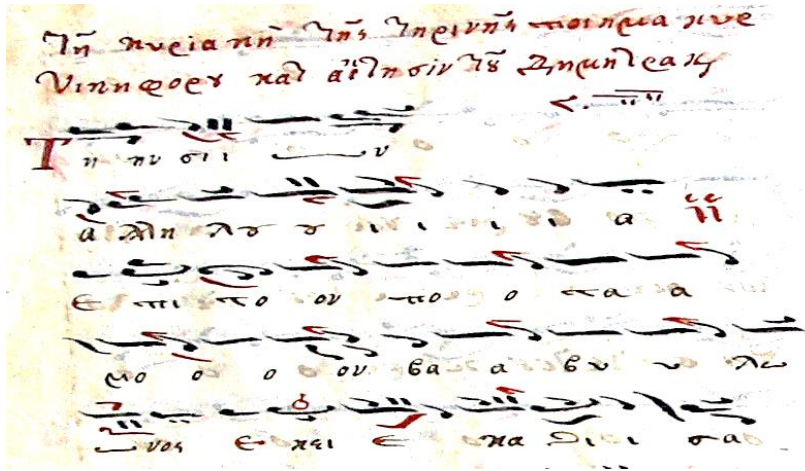 Τῇ κυριακῇ τῆς τηρινῆς ποιημα κυρ
Νικηφορου κατ αἴτησιν τοῦ Δημητρακη
α λλη λου ου ι ι ι ι α
Ε πι πο ον πο ο τα α
μο ο ο ον βα α βυ υ λω
νος ε κει ε κα θι ι σα